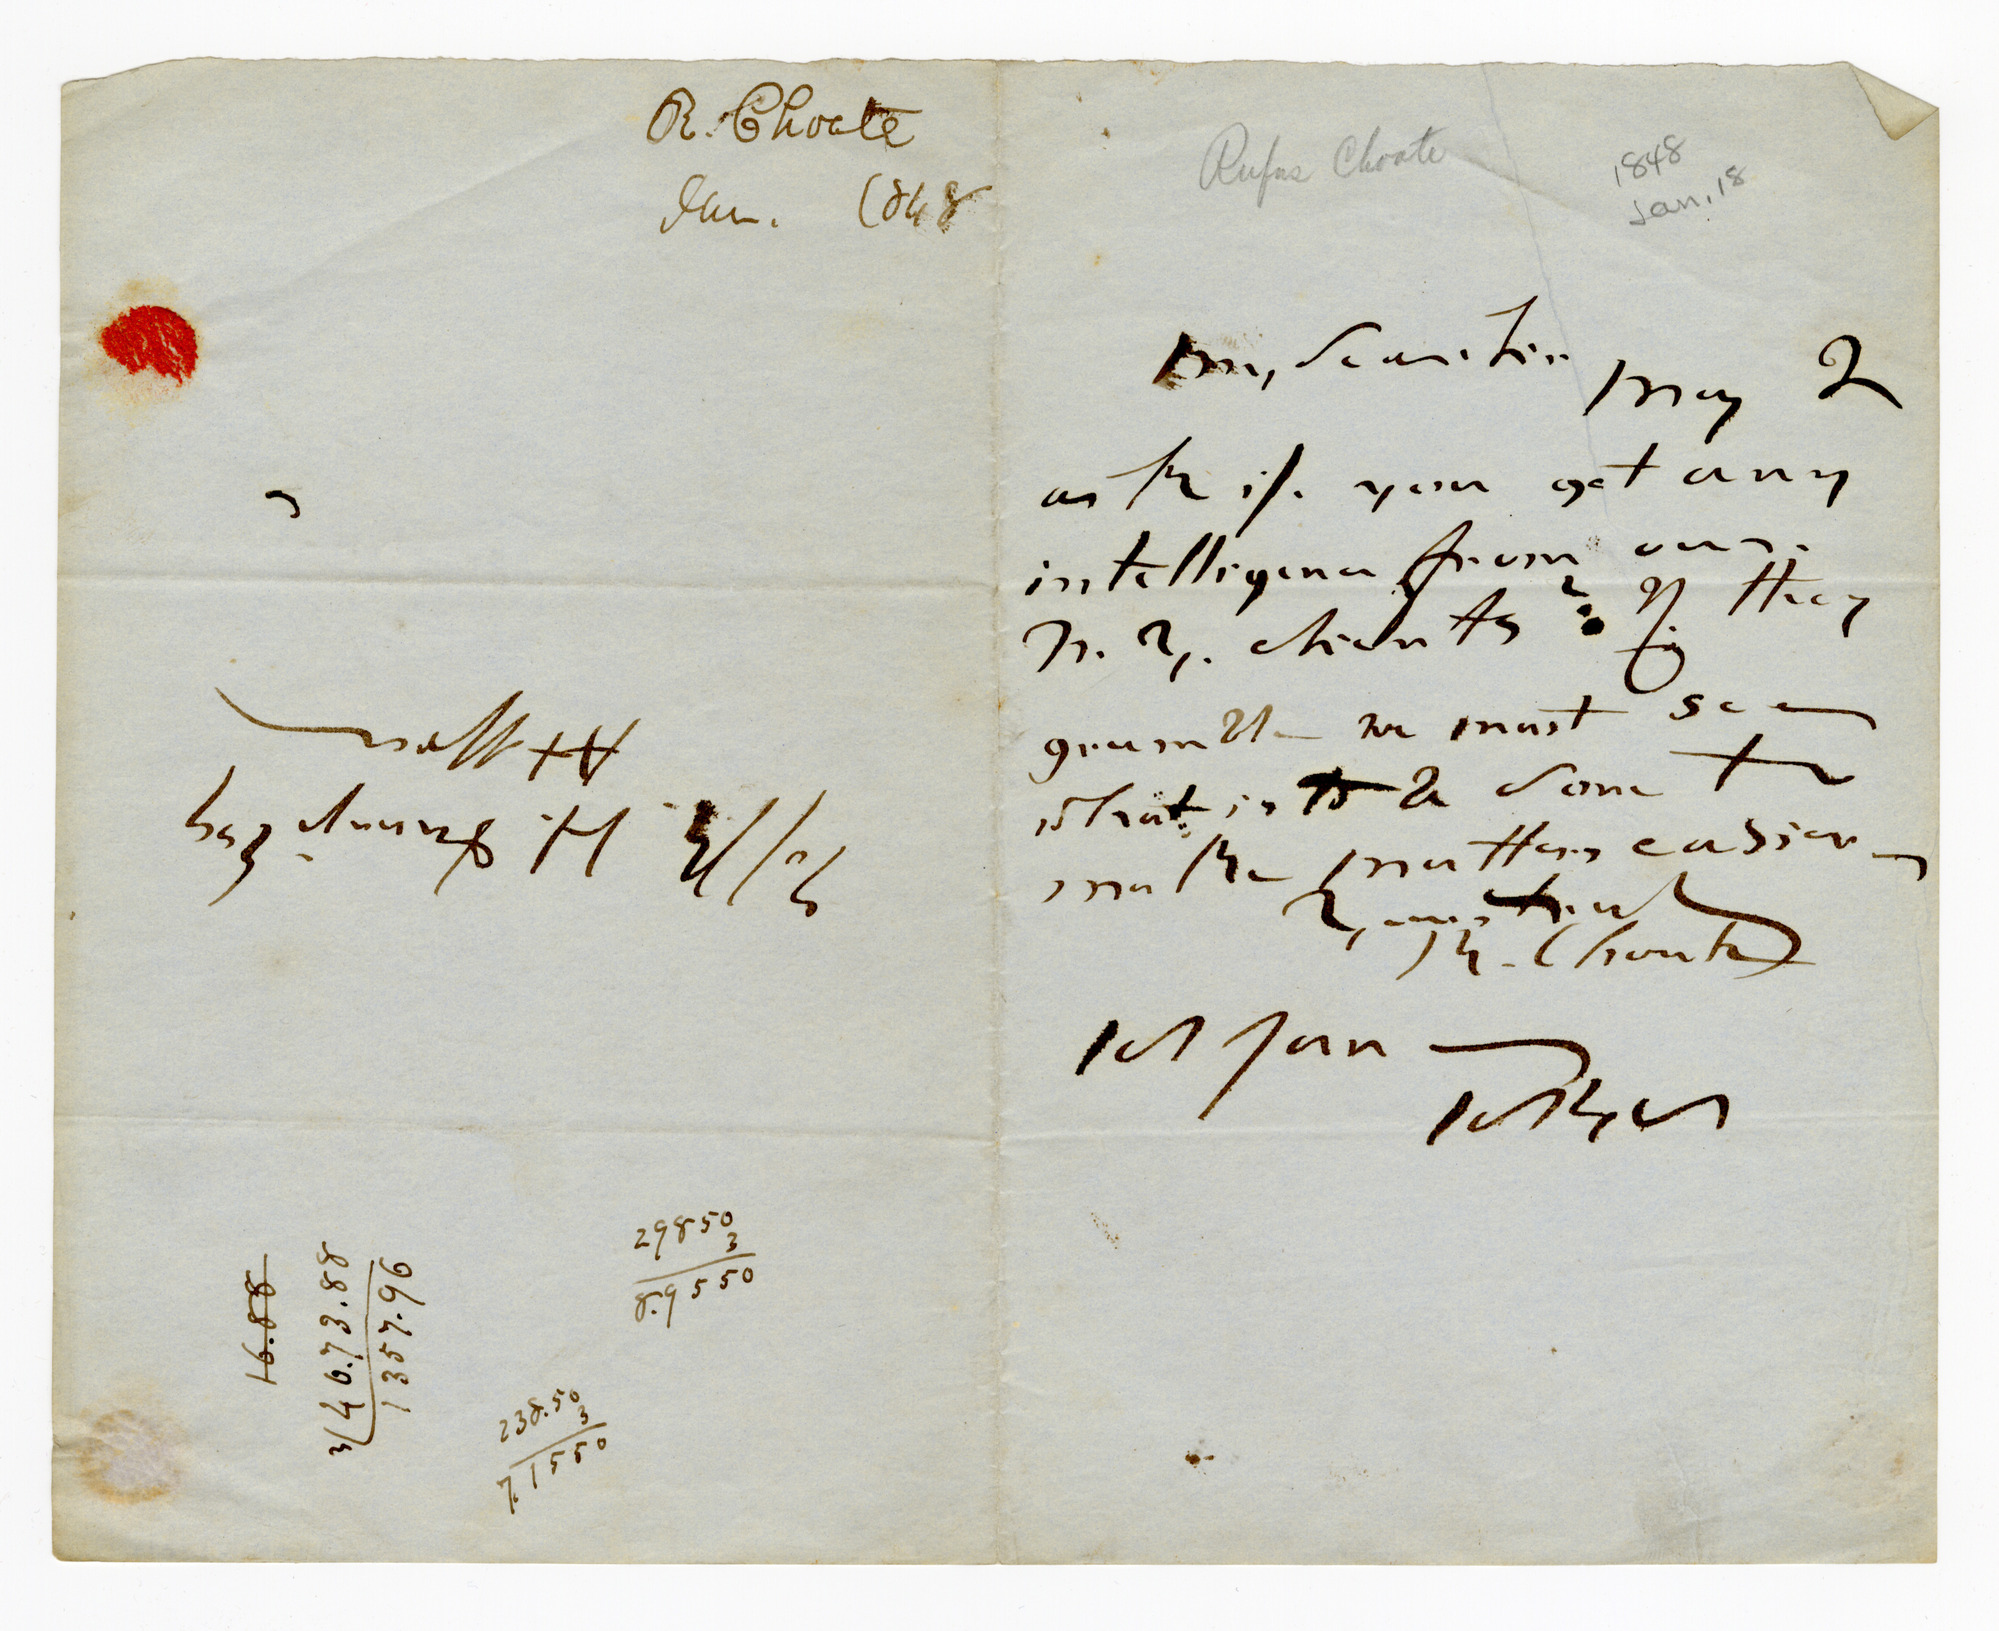 R. Choate
Jan. 1848
29850
3
8.9550
238.50
3
7.1550
16.88
3)4073.88
1357.96
Rufus Choate
1848
Jan. 18
My dear Sir
May I
ask if you get any
intelligence from our
N. Y. clients? If they
grumble we must see
what is to be done to
make matters easier
Yours truly
R. Choate
18 Jan